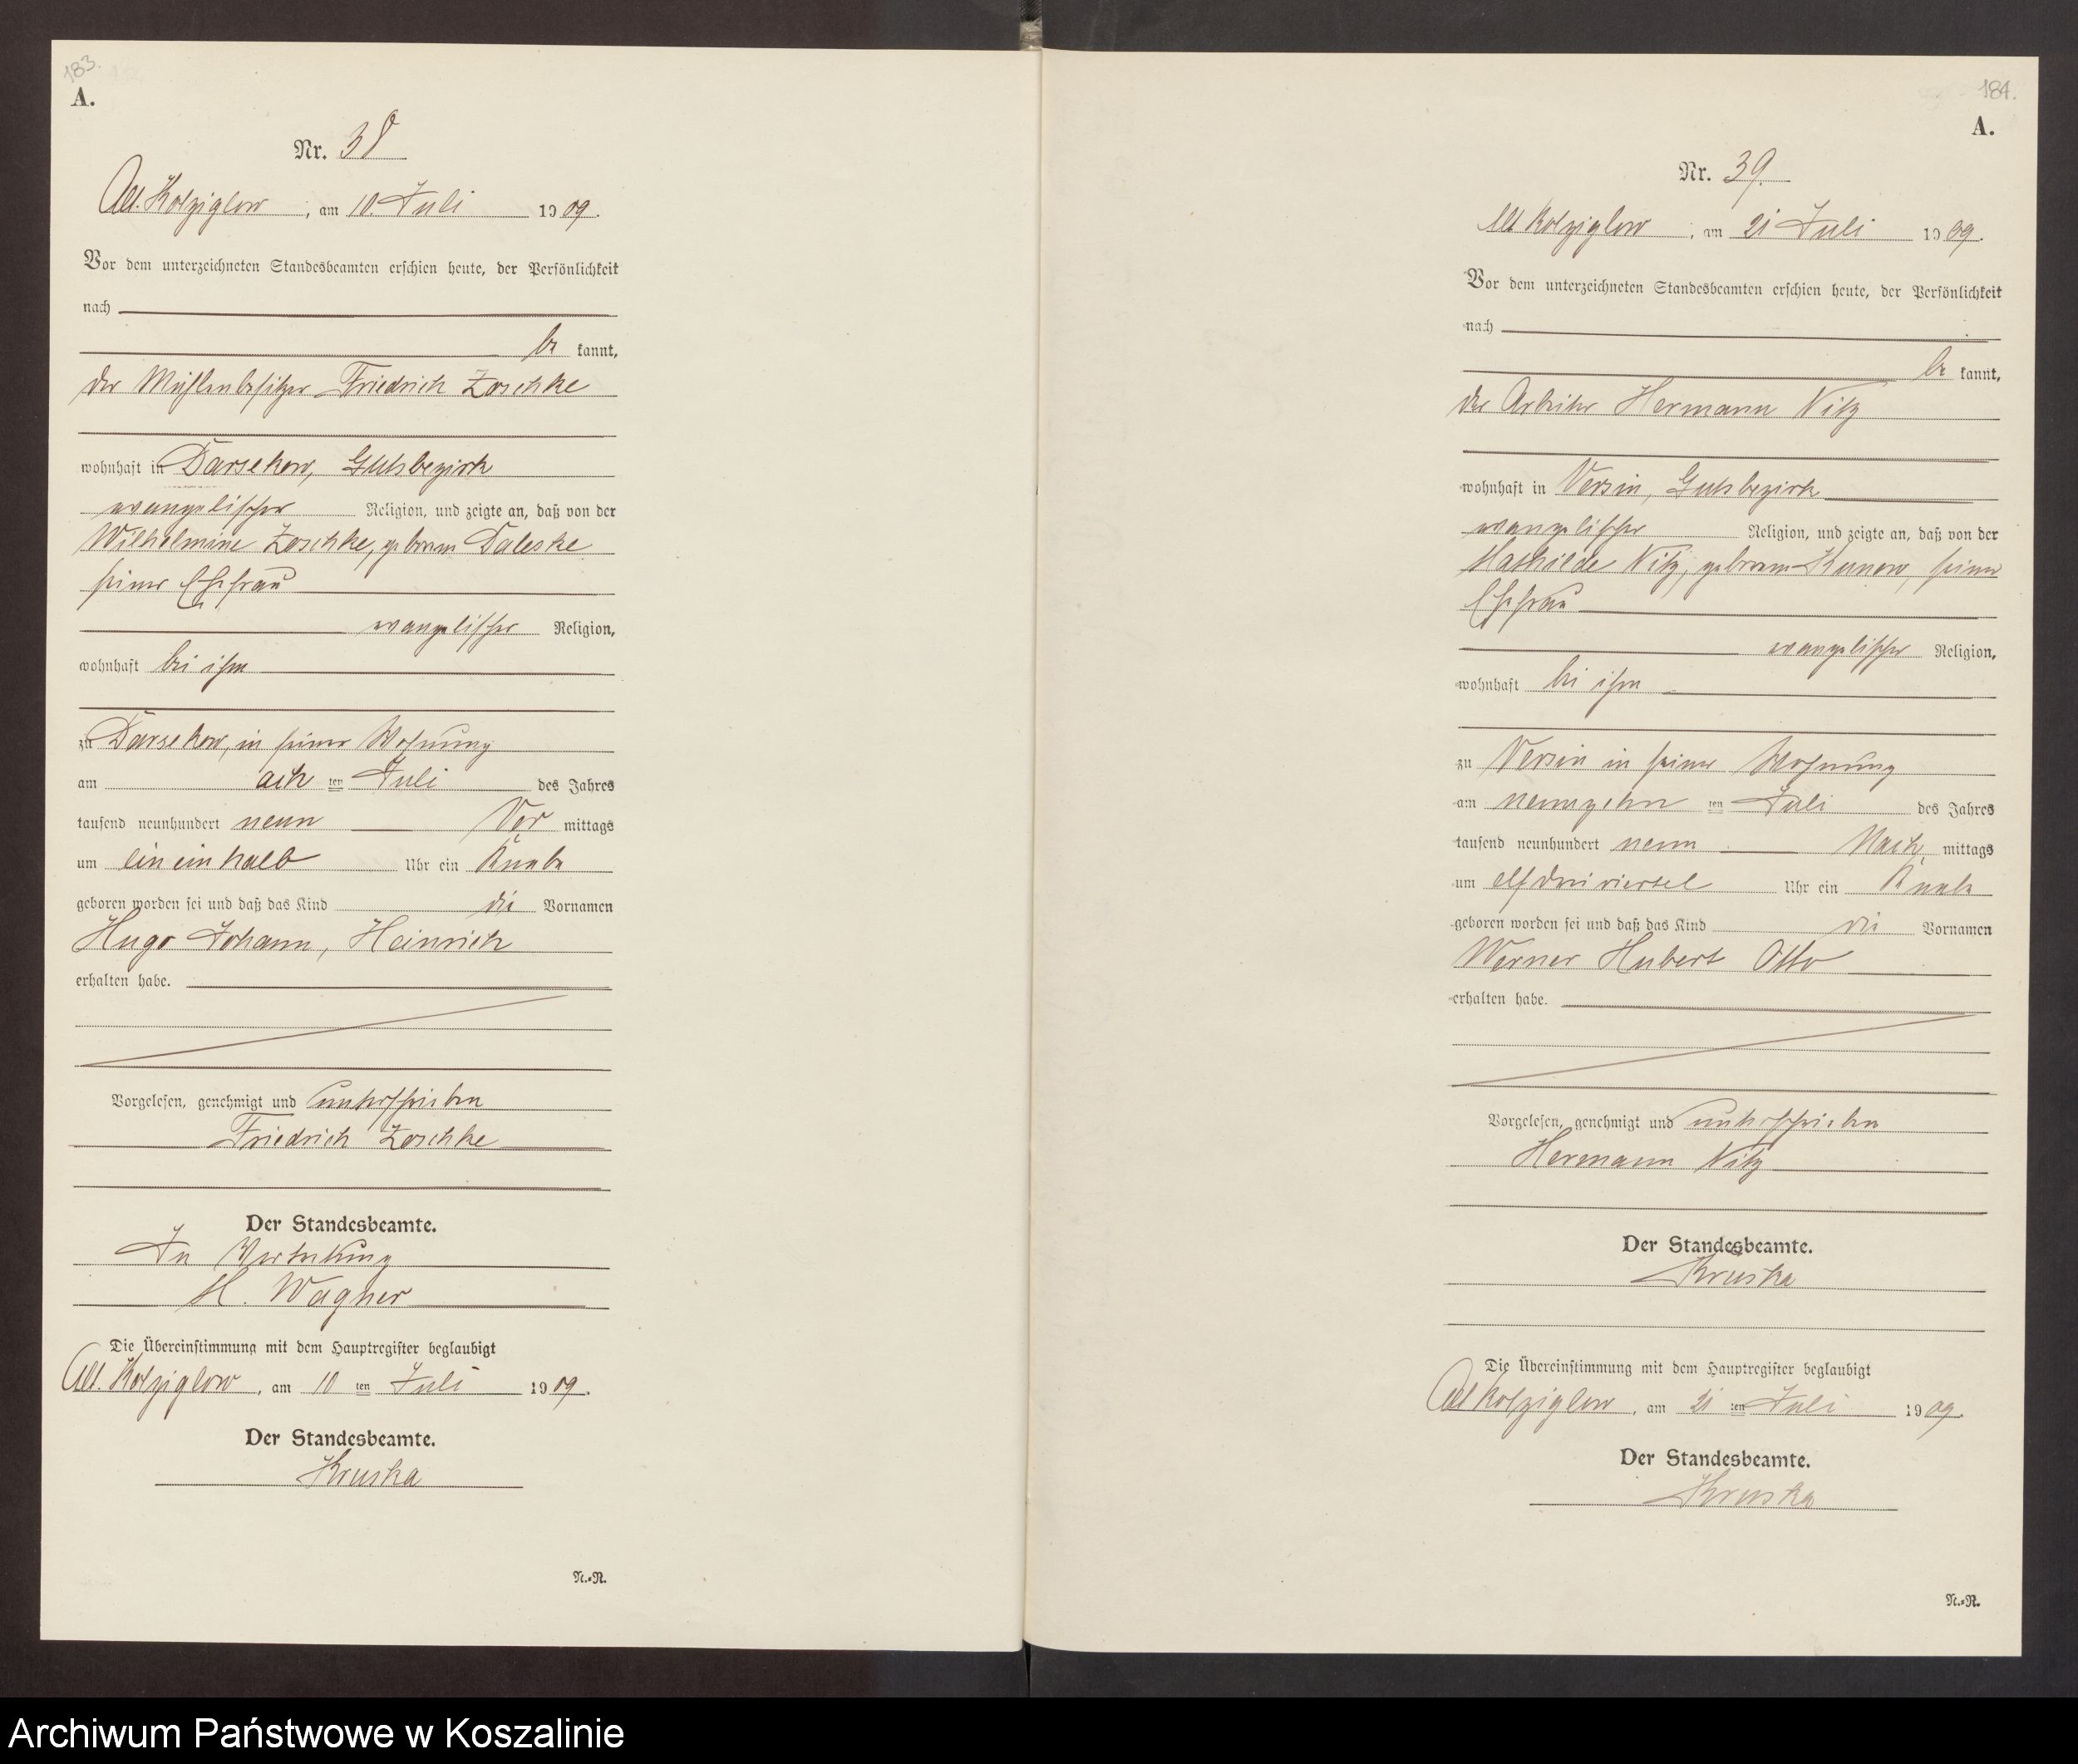 183.
A.
Nr. 38
Alt. Kolziglow, am 10. Juli 1909.
Vor dem unterzeichneten Standesbeamten erschien heute, der Persönlichkeit
nach
be kannt,
der Mühlenbesitzer Friedrich Zoschke
wohnhaft in Darsekow, Gutsbezirk
evangelischer Religion, und zeigte an, daß von der
Wilhelmine Zoschke, geborenen Daleske
seiner Ehefrau
evangelischer Religion,
wohnhaft bei ihm
zu Darsekow, in seiner Wohnung
am ach ten Juli des Jahres
tausend neunhundert neun Vor mittags
um eineinhalb Uhr ein Knabe
geboren worden sei und daß das Kind die Vornamen
Hugo Johann, Heinrich
erhalten habe.
Vorgelesen, genehmigt und unterschrieben
Friedrich Zoschke
Der Standesbeamte.
In Vertretung
H. Wagner
Die Übereinstimmung mit dem Hauptregister beglaubigt
Alt. Kolziglow, am 10 ten Juli 1909.
Der Standesbeamte.
Kruska
N.=R.
184.
A.
Nr. 39.
Alt Kolziglow, am 21 Juli 1909.
Vor dem unterzeichneten Standesbeamten erschien heute, der Persönlichkeit
nach
be kannt,
der Arbeiter Hermann Nitz
wohnhaft in Versin, Gutsbezirk
evangelischer Religion, und zeigte an, daß von der
Mathilde Nitz, geborenen Kunow, seiner
Ehefrau
evangelischer Religion,
wohnhaft bei ihm
zu Versin in seiner Wohnung
am neunzehn ten Juli des Jahres
tausend neunhundert neun Nach mittags
um elfdreiviertel Uhr ein Knabe
geboren worden sei und daß das Kind die Vornamen
Werner Hubert Otto
erhalten habe.
Vorgelesen, genehmigt und unterschrieben
Hermann Nitz
Der Standesbeamte.
Kruska
Die Übereinstimmung mit dem Hauptregister beglaubigt
Alt Kolziglow, am 21 ten Juli 1909.
Der Standesbeamte.
Kruska
N.=R.
Archiwum Państwowe w Koszalinie